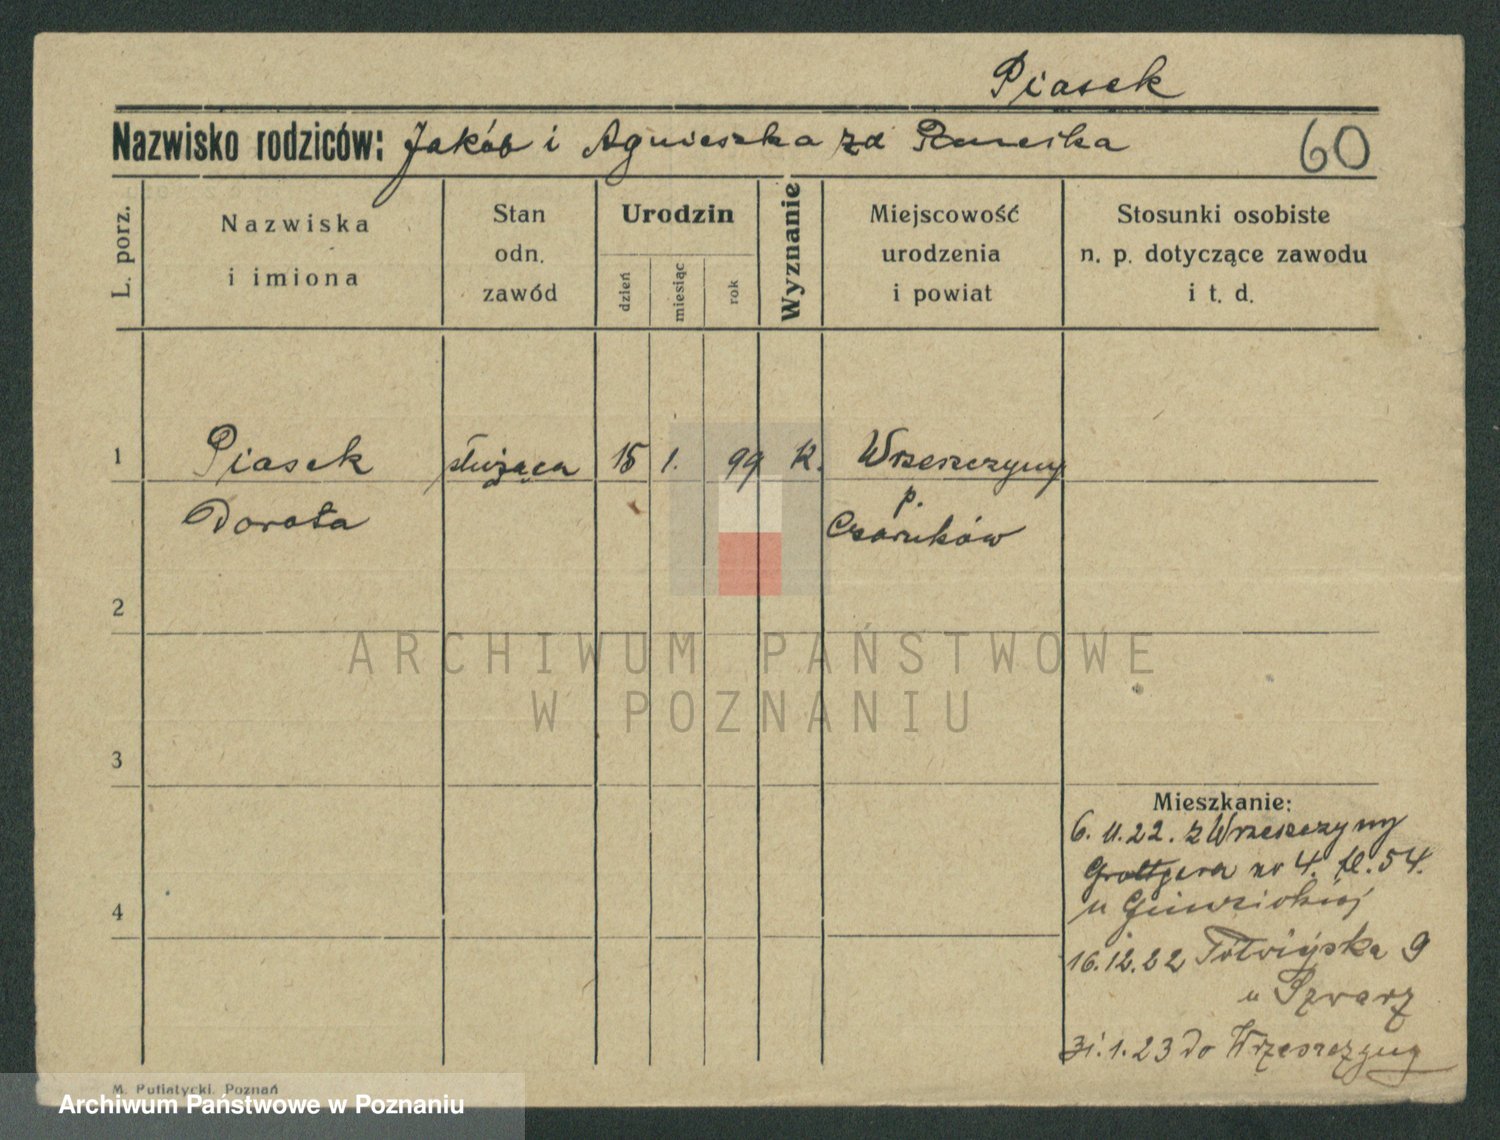 Piasek
Nazwisko rodziców: Jakób i Agnieszka zd
60
L. porz.
Nazwiska
i imiona
Stan
odn.
zawód
Urodzin
dzień
miesiąc
rok
Wyznanie
Miejscowość
urodzenia
i powiat
Stosunki osobiste
n. p. dotyczące zawodu
i t. d.
1
Piasek
służąca
15
1.
99
k.
Wrzeszczyny
Dorota
p.
Czarnków
2
ARCHIWUM PAŃSTWOWE
W POZNANIU
3
Mieszkanie:
6. 11. 22. z Wrzeszczyny
Grottgera nr 4. 54.
u
4
16. 12. 22 9
u
31. 1. 23 do Wrzeszczyny
M. Putiatycki, Poznań
Archiwum Państwowe w Poznaniu